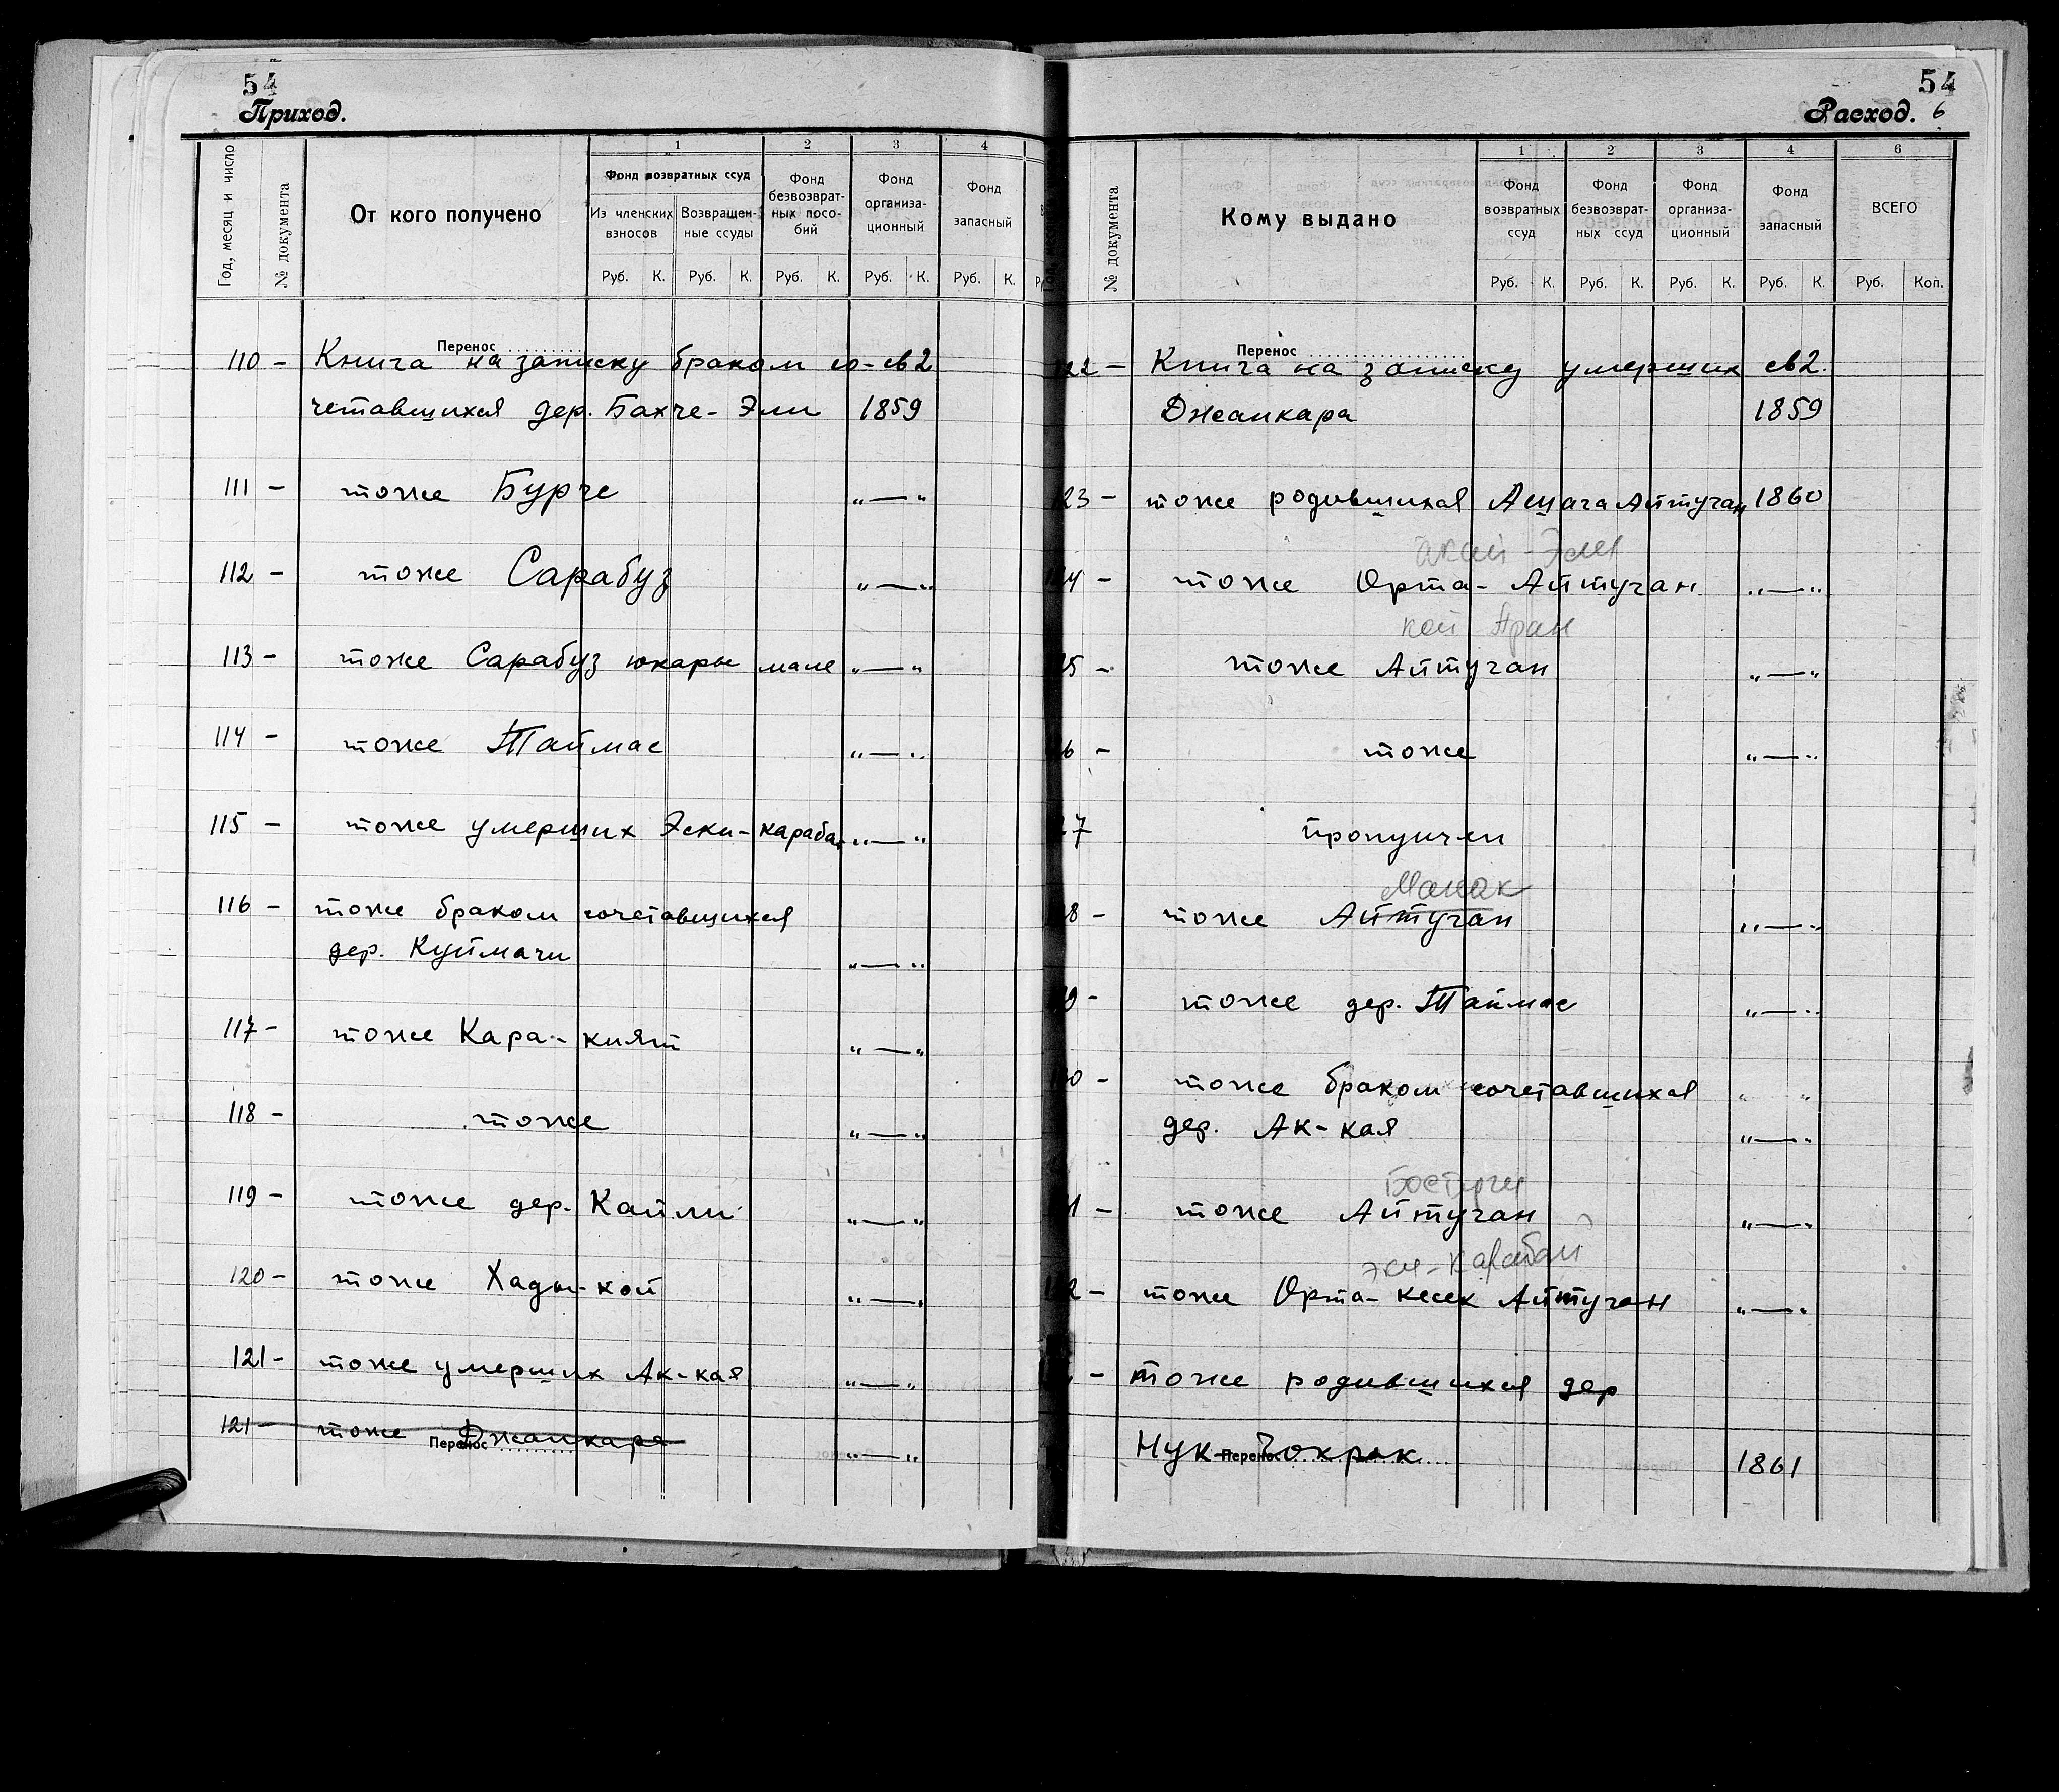 54
Приход.
Год, месяц и число
№ документа
От кого получено
1
Фонд возвратных ссуд
Из членских взносов
Возвращен-
ные ссуды
2
Фонд
безвозврат-
ных посо-
бий
3
Фонд
организа-
ционный
4
Фонд
запасный
Руб. К. Руб. К. Руб. К. Руб. К. Руб. К.
Перенос
110 - Книга на записку браком со- св2
четавшихся дер. Бахче-Эли 1859
111 - тоже Бурче „—“
112 - тоже Сарабуз „—“
113 - тоже Сарабуз юкары мале „—“
114 - тоже Таймас „—“
115 - тоже умерших Эски-караба „—“
116 - тоже браком сочетавшихся
дер. Куймачи „—“
117 - тоже Кара-кият „—“
118 - тоже „—“
119 - тоже дер. Кайли „—“
120 - тоже Хады-кой „—“
121 - тоже умерших Ак-кая „—“
121 - тоже Джанкара „—“
Перенос
54
Расход. 6
№ документа
Кому выдано
1
Фонд
возвратных
ссуд
2
Фонд
безвозврат-
ных ссуд
3
Фонд
организа-
ционный
4
Фонд
запасный
6
ВСЕГО
Руб. К. Руб. К. Руб. К. Руб. К. Руб. Коп.
Перенос
22 - Книга на записку умерших св2.
Джанкара 1859
23 - тоже родившихся Ашага Айтуган 1860
Акай-Эли
24 - тоже Орта-Айтуган „—“
кой Аран
25 - тоже Айтуган „—“
6 - тоже „—“
7 пропущен
Манак
8 - тоже Айтуган „—“
9 - тоже дер. Таймас „—“
0 - тоже браком сочетавшихся „ “
дер. Ак-кая „—“
1 - тоже Айтуган „—“
эки-Карабай
2 - тоже Орта-кесек Айтуган „—“
- тоже родившихся дер
Нук-Чокрак 1861
Перенос